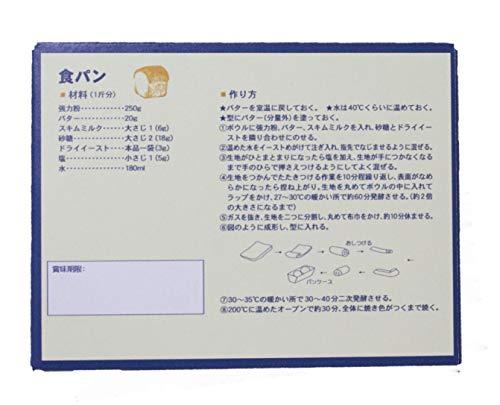 食パン
■ 材料（1斤分）
強力粉・・・・・・・・・・・250g
バター・・・・・・・・・・・20g
スキムミルク・・・・大さじ1（6g）
砂糖・・・・・・・・・・・大さじ2（18g）
ドライイースト・・・本品一袋（3g）
塩・・・・・・・・・・・・・小さじ1（5g）
水・・・・・・・・・・・・・180ml
賞味期限：
■ 作り方
★バターを室温に戻しておく。 ★水は40℃くらいに温めておく。
★型にバター（分量外）を塗っておく。
①ボウルに強力粉、バター、スキムミルクを入れ、砂糖とドライイー
ストを隣り合わせにのせる。
②温めた水をイーストめがけて注ぎ入れ、指先でなじませるように混ぜる。
③生地がひとまとまりになったら塩を加え、生地が手につかなくなる
まで手のひらで押さえつけるようにしてよく混ぜる。
④生地をつかんでたたきつける作業を10分程繰り返し、表面がなめ
らかになったら捏ね上がり。生地を丸めてボウルの中に入れて
ラップをかけ、27〜30℃の暖かい所で約60分発酵させる。（約2倍
の大きさになるまで）
⑤ガスを抜き、生地を二つに分割し、丸めて布巾をかけ、約10分休ませる。
⑥図のように成形し、型に入れる。
おしつける
パンケース
⑦30〜35℃の暖かい所で30〜40分二次発酵させる。
⑧200℃に温めたオーブンで約30分、全体に焼き色がつくまで焼く。